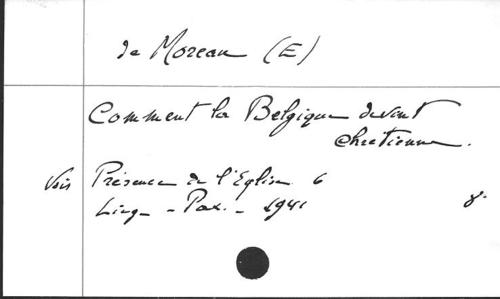 de Moreau (E)
Comment la Belgique devint
chrétienne.
Vois Présence de l'Eglise 6
Liège - Pax. - 1941 8°